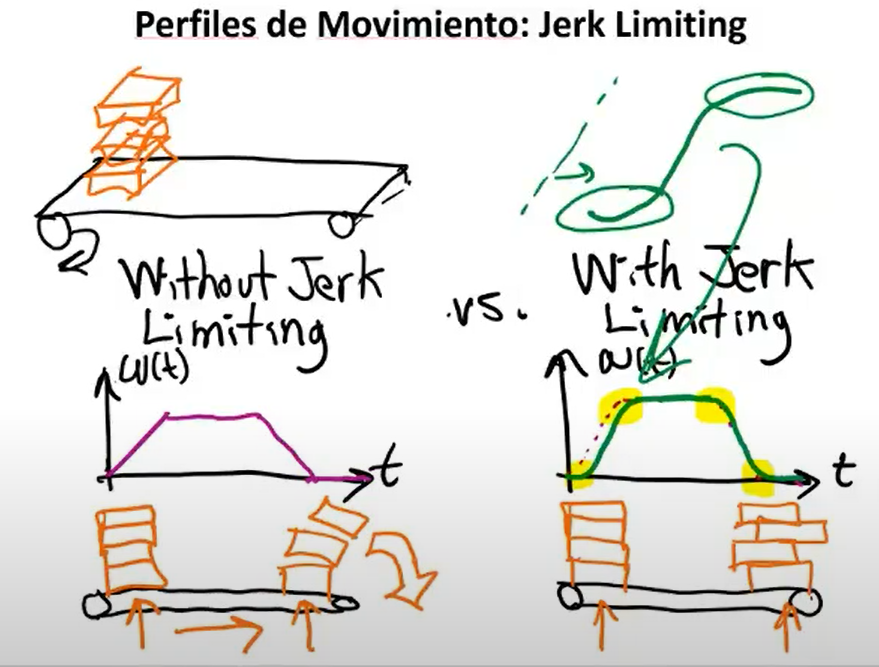 Perfiles de Movimiento: Jerk Limiting
Without Jerk
Limiting
vs.
With Jerk
Limiting
ω(t)
t
ω(t)
t